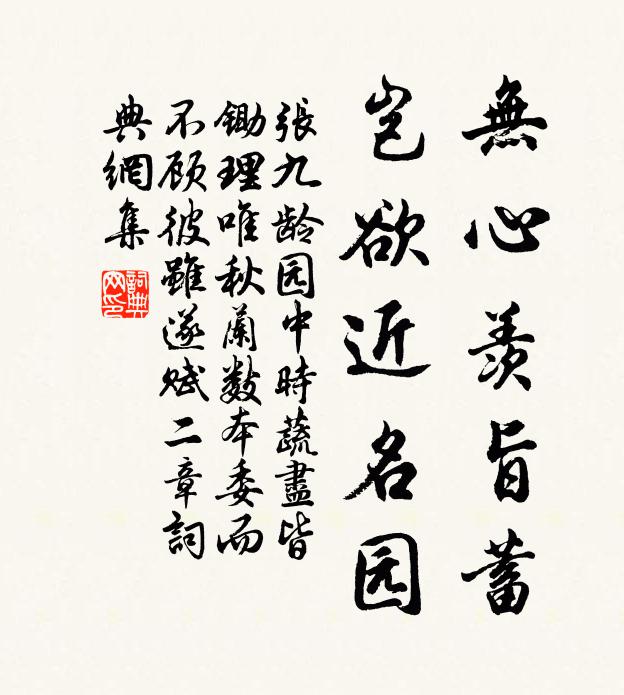 無心羨旨蓄
豈欲近名园
張九龄园中時蔬盡皆
鋤理唯秋蘭數本委而
不顾彼雖遂赋二章詞
典網集
詞典网印